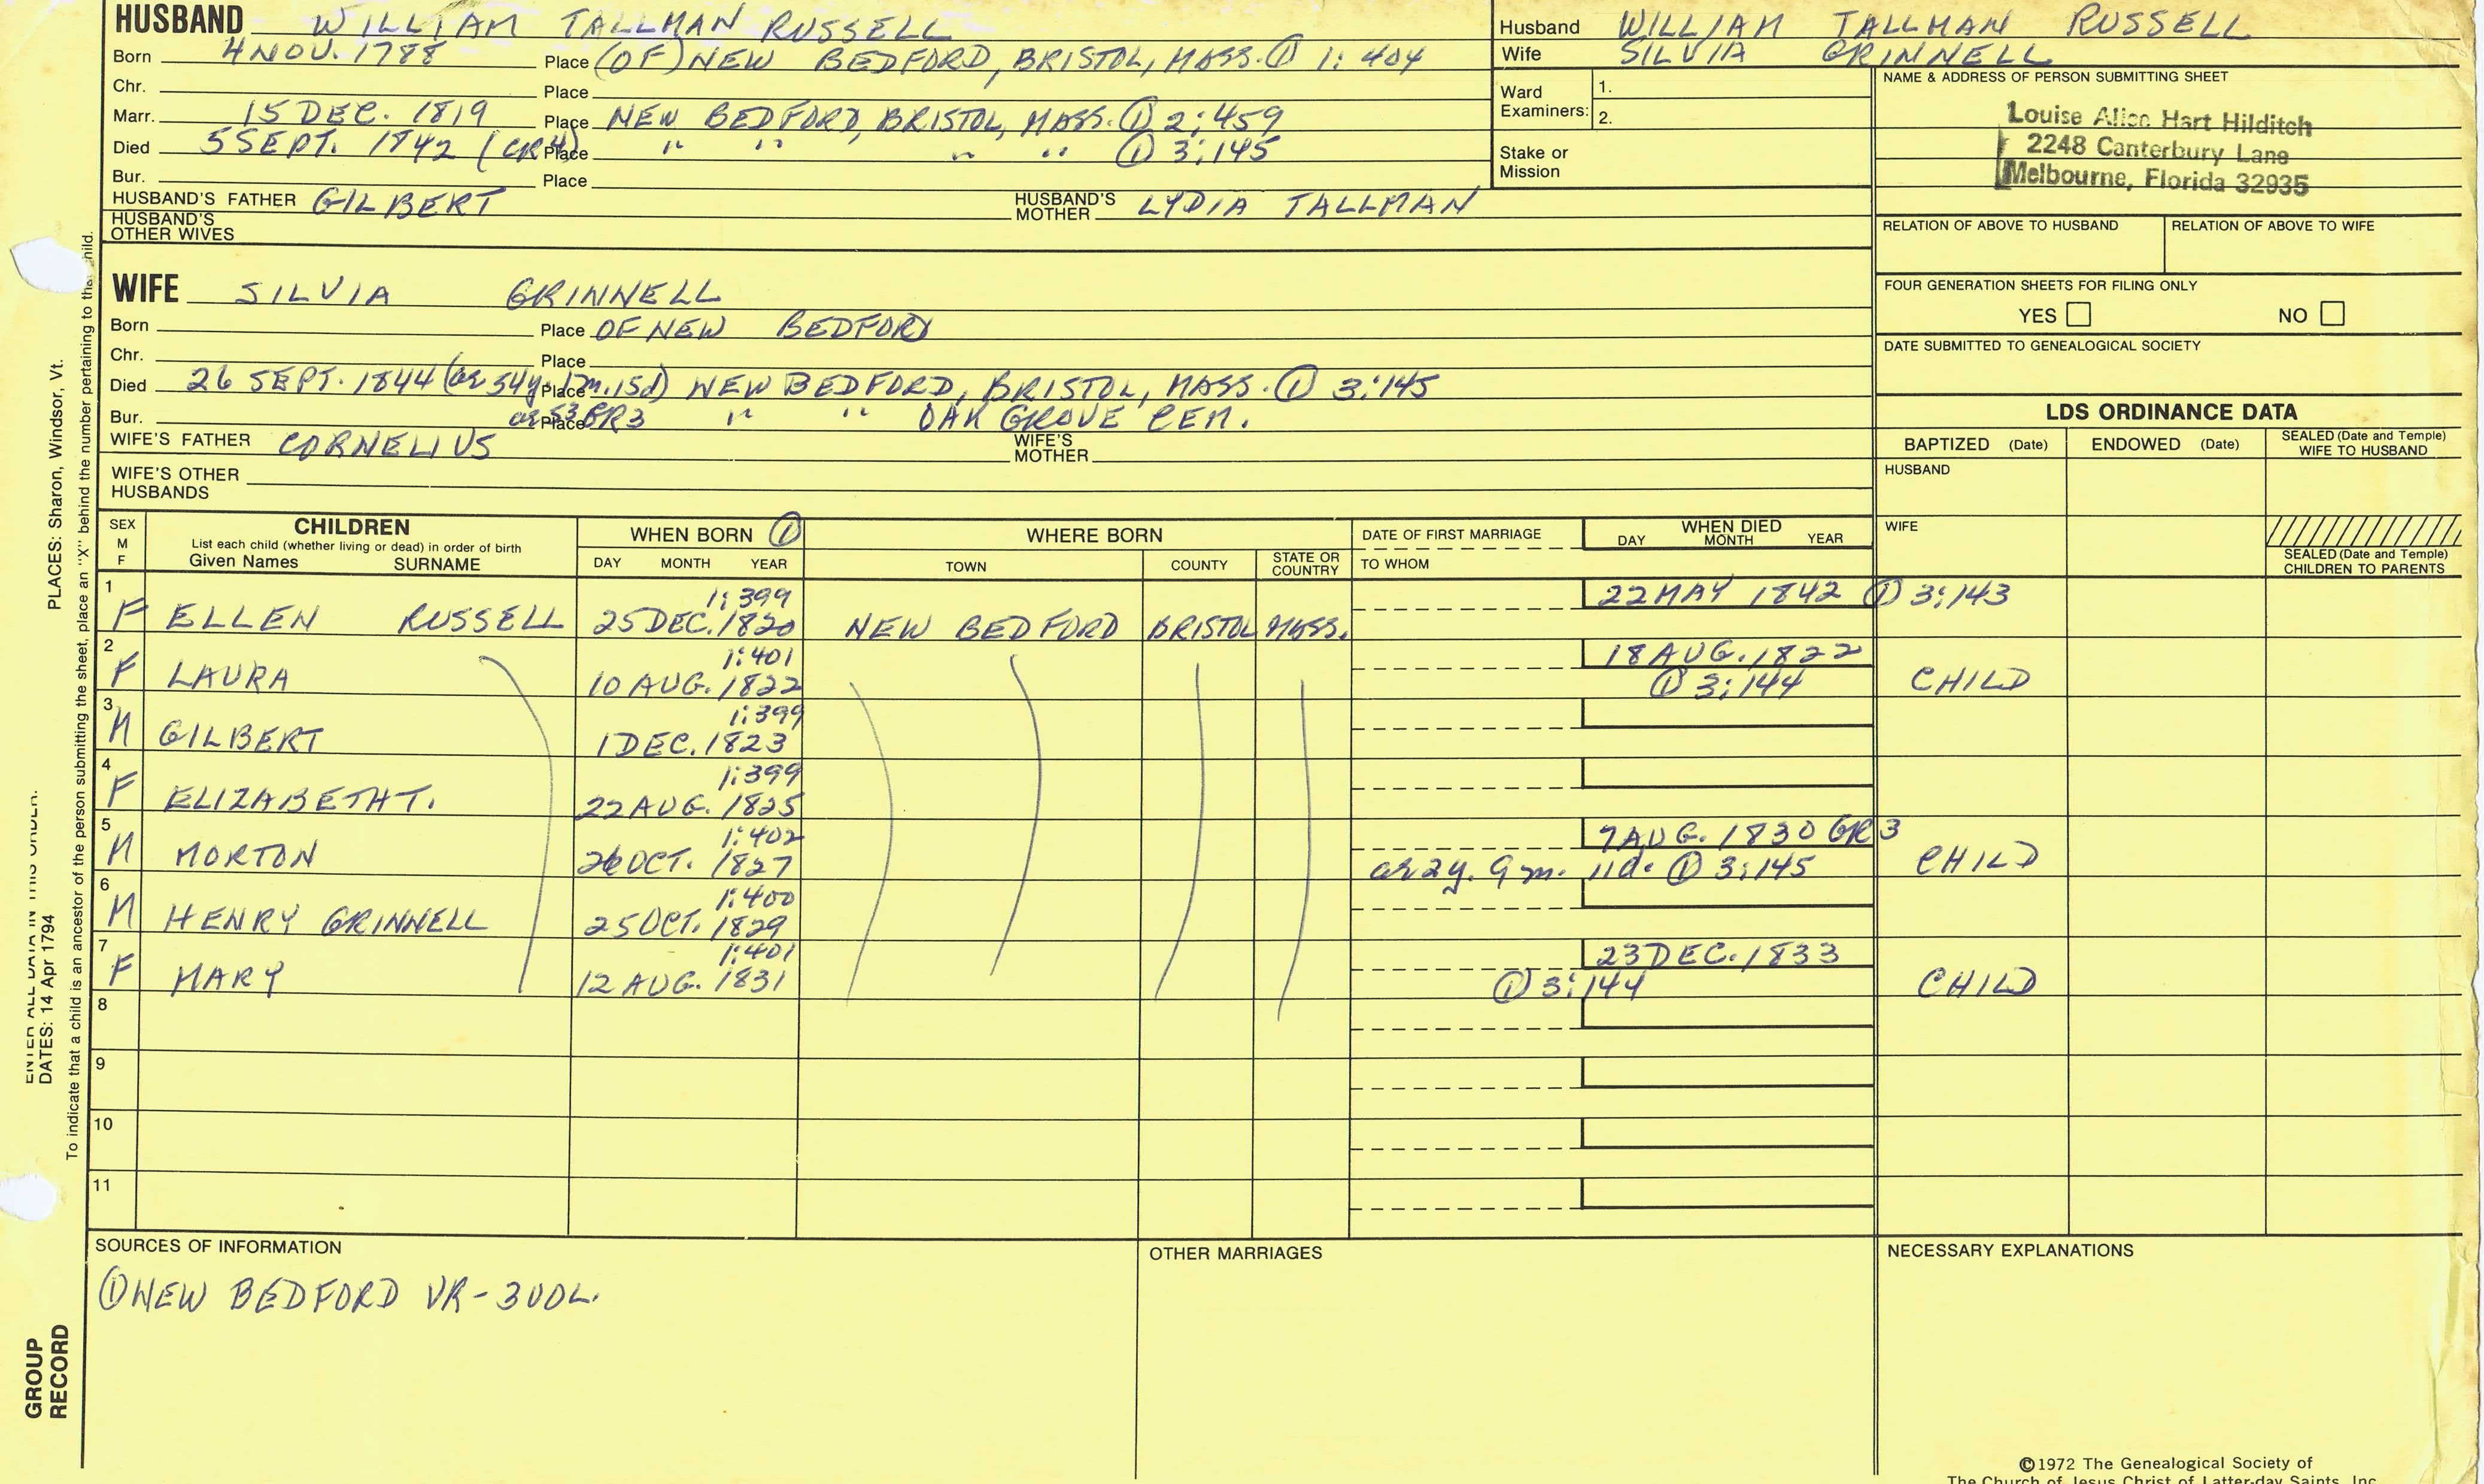 HUSBAND WILLIAM TALLMAN RUSSELL
Born 4 NOV. 1788 Place (OF) NEW BEDFORD, BRISTOL, MASS. ① 1: 404
Chr. Place
Marr. 15 DEC. 1819 Place NEW BEDFORD, BRISTOL, MASS. ① 2:459
Died 5 SEPT. 1842 (CR4) Place " " " " ① 3:145
Bur. Place
HUSBAND'S FATHER GILBERT HUSBAND'S MOTHER LYDIA TALLMAN
HUSBAND'S OTHER WIVES
Husband WILLIAM TALLMAN RUSSELL
Wife SILVIA GRINNELL
Ward Examiners: 1.
2.
Stake or Mission
NAME & ADDRESS OF PERSON SUBMITTING SHEET
Louise Alice Hart Hilditch
2248 Canterbury Lane
Melbourne, Florida 32935
RELATION OF ABOVE TO HUSBAND RELATION OF ABOVE TO WIFE
FOUR GENERATION SHEETS FOR FILING ONLY
YES NO
DATE SUBMITTED TO GENEALOGICAL SOCIETY
WIFE SILVIA GRINNELL
Born Place OF NEW BEDFORD
Chr. Place
Died 26 SEPT. 1844 (ae 54y. Place m. 15d) NEW BEDFORD, BRISTOL, MASS. ① 3:145
Bur. ae 53 Place GR3 " " OAK GROVE CEM.
WIFE'S FATHER CORNELIUS WIFE'S MOTHER
WIFE'S OTHER HUSBANDS
LDS ORDINANCE DATA
BAPTIZED (Date) ENDOWED (Date) SEALED (Date and Temple) WIFE TO HUSBAND
HUSBAND
WIFE
SEALED (Date and Temple) CHILDREN TO PARENTS
SEX M F CHILDREN WHEN BORN ① WHERE BORN DATE OF FIRST MARRIAGE WHEN DIED
List each child (whether living or dead) in order of birth
Given Names SURNAME DAY MONTH YEAR TOWN COUNTY STATE OR COUNTRY TO WHOM DAY MONTH YEAR
1 1:399 22 MAY 1842 ① 3:143
F ELLEN RUSSELL 25 DEC. 1820 NEW BEDFORD BRISTOL MASS.
2 1:401 18 AUG. 1822
F LAURA 10 AUG. 1822 ① 3:144 CHILD
3 1:399
M GILBERT 1 DEC. 1823
4 1:399
F ELIZABETH T. 22 AUG. 1825
5 1:402 7 AUG. 1830 GR3
M MORTON 26 OCT. 1827 ae 2y. 9m. 11d. ① 3:145 CHILD
6 1:400
M HENRY GRINNELL 25 OCT. 1829
7 1:401 23 DEC. 1833
F MARY 12 AUG. 1831 ① 3:144 CHILD
8
9
10
11
SOURCES OF INFORMATION OTHER MARRIAGES NECESSARY EXPLANATIONS
① NEW BEDFORD VR-3VOL.
©1972 The Genealogical Society of
The Church of Jesus Christ of Latter-day Saints, Inc.
ENTER ALL DATA IN THIS ORDER:
PLACES: Sharon, Windsor, Vt.
DATES: 14 Apr 1794
To indicate that a child is an ancestor of the person submitting the sheet, place an "X" behind the number pertaining to that child.
GROUP
RECORD